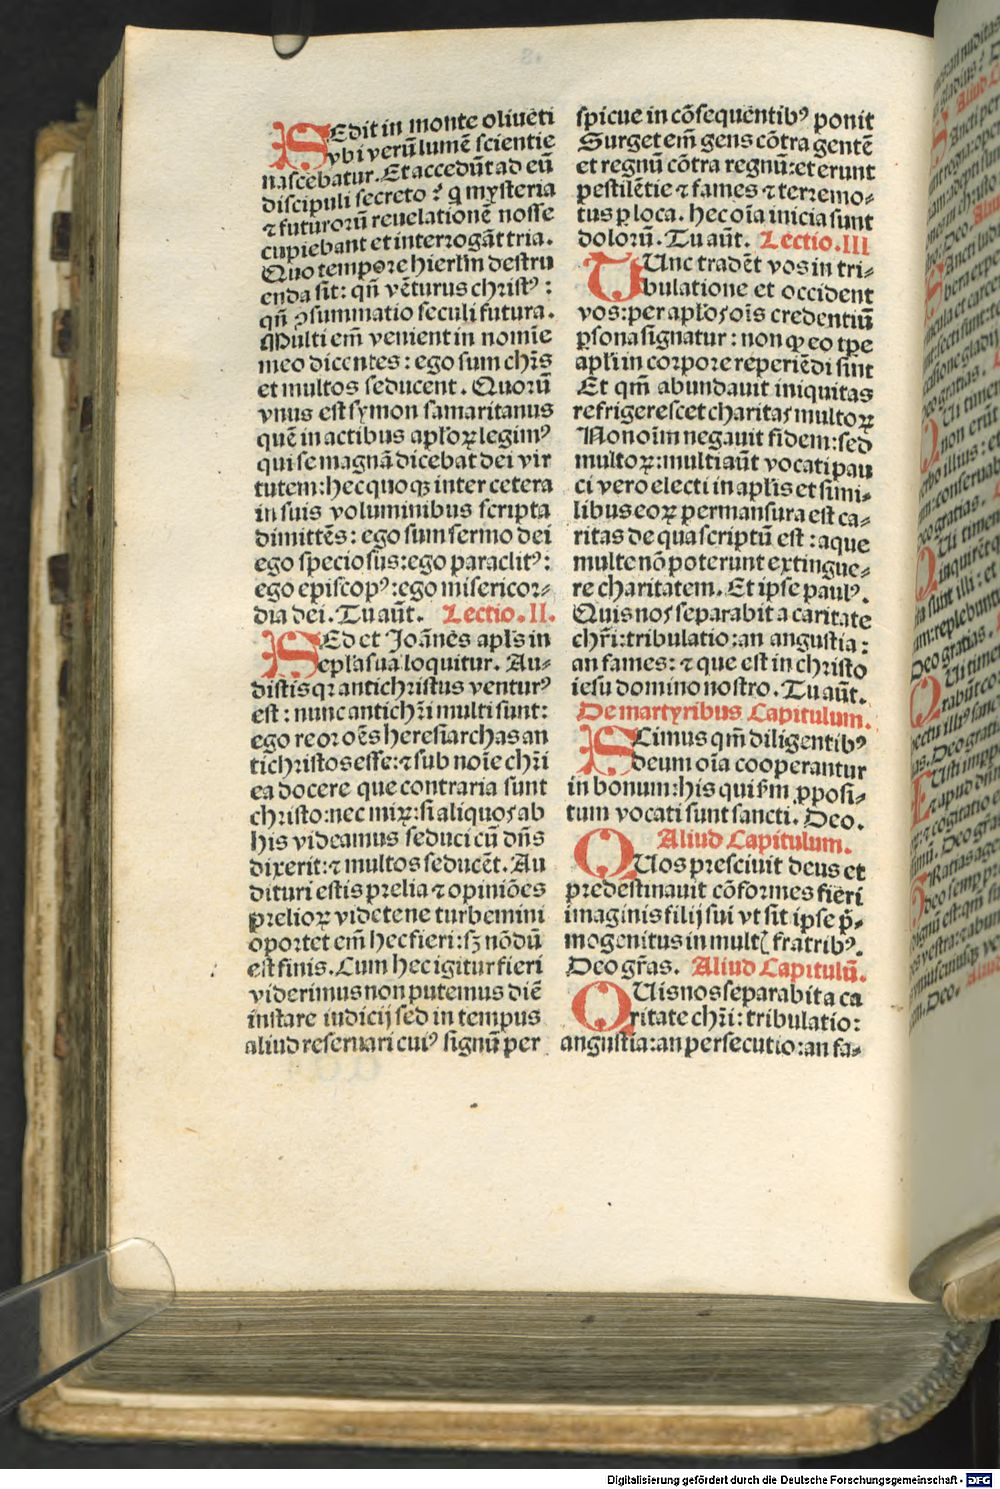 SEdit in monte oliuēti
vbi verū lumē scientie
nascebatur. Et accedūt ad eū
discipuli secreto ? q̄ mysteria
⁊ futurorū reuelationē nosse
cupiebant et interrogāt tria.
Quo tempore hierl̄m destru
enda sit: qn̄ vēturus christꝰ :
qn̄ ꝯsummatio seculi futura.
Multi em̄ venient in nomīe
meo dicentes : ego sum chr̄s
et multos seducent. Quorū
vnus est symon samaritanus
quē in actibus apl̄oꝝ legimꝰ
qui se magnā dicebat dei vir
tutem: hec quoqꝫ inter cetera
in suis voluminibus scripta
dimittēs : ego sum sermo dei
ego speciosus: ego paraclitꝰ :
ego episcopꝰ: ego misericor⸗
dia dei. Tu aūt. Lectio. II.
SEd et Joānes apl̄s in
epl̄a sua loquitur. Au⸗
distis qꝛ antichristus venturꝰ
est : nunc antichr̄i multi sunt:
ego reor oēs heresiarchas an
tichristos esse: ⁊ sub noīe chr̄i
ea docere que contraria sunt
christo: nec miꝝ: si aliquos ab
his videamus seduci cū dn̄s
dixerit: ⁊ multos seducēt. Au
dituri estis prelia ⁊ opiniōes
prelioꝝ videte ne turbemini
oportet em̄ hec fieri: sꝫ nōdū
est finis. Cum hec igitur fieri
viderimus non putemus diē
instare iudicij sed in tempus
aliud reseruari cuiꝰ signū per
spicue in cōsequentibꝰ ponit
Surget em̄ gens cōtra gentē
et regnū cōtra regnū: et erunt
pestilētie ⁊ fames ⁊ terremo⸗
tus ꝑ loca. hec oīa inicia sunt
dolorū. Tu aūt. Lectio. III
TUnc tradēt vos in tri⸗
bulatione et occident
vos: per apl̄os oīs credentiū
ꝑsona signatur : non ꝙ eo tꝑe
apl̄i in corpore reperiēdi sint
Et qm̄ abundauit iniquitas
refrigerescet charitas multoꝝ
Non oīm negauit fidem: sed
multoꝝ: multi aūt vocati pau
ci vero electi in apl̄is et simi⸗
libus eoꝝ permansura est ca⸗
ritas de qua scriptū est : aque
multe nō poterunt extingue⸗
re charitatem. Et ipse paulꝰ.
Quis nos separabit a caritate
chr̄i: tribulatio: an angustia :
an fames : ⁊ que est in christo
iesu domino nostro. Tu aūt.
De martyribus Capitulum.
SCimus qm̄ diligentibꝰ
deum oīa cooperantur
in bonum: his qui ẜm ꝓposi⸗
tum vocati sunt sancti. Deo.
Aliud Capitulum.
QUos presciuit deus et
predestinauit cōformes fieri
imaginis filij sui vt sit ipse p̄⸗
mogenitus in multꝭ fratribꝰ.
Deo gr̄as. Aliud Capitulū.
QUis nos separabit a ca
ritate chr̄i: tribulatio:
angustia: an persecutio: an fa⸗
Digitalisierung gefördert durch die Deutsche Forschungsgemeinschaft - DFG